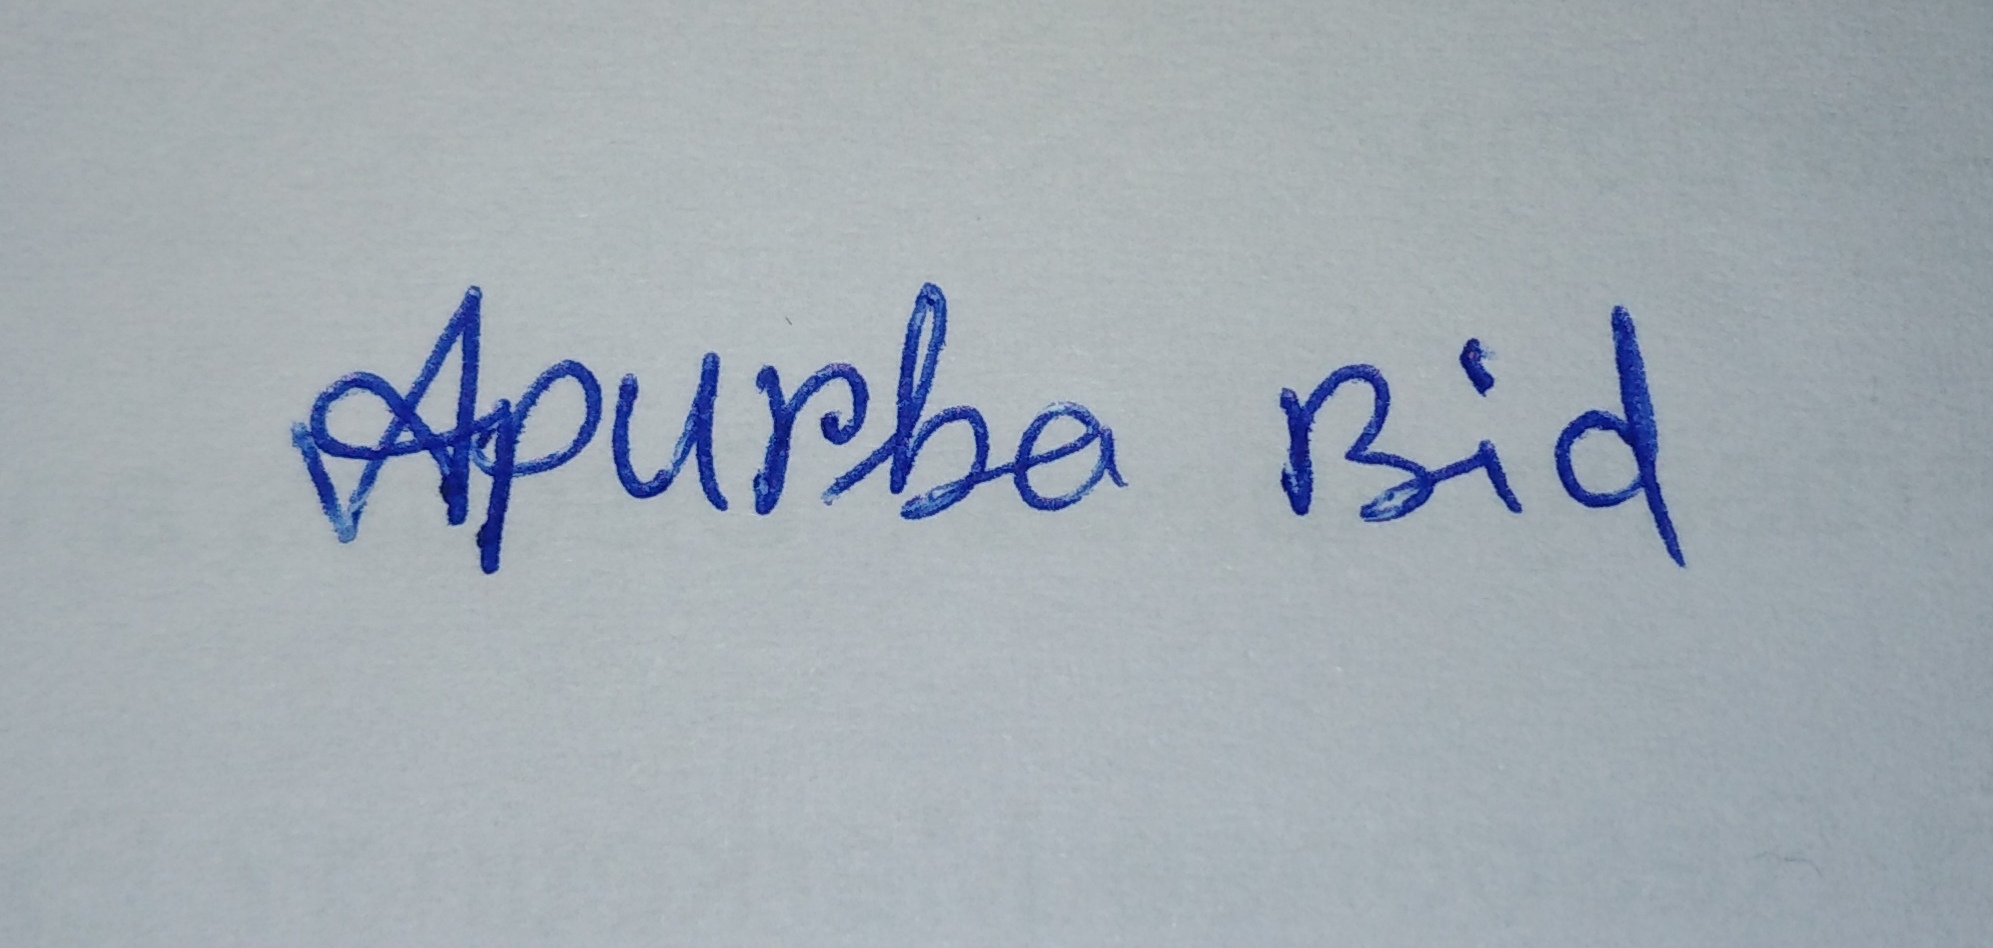 Apurba Bid